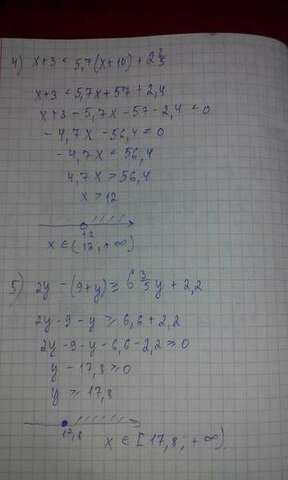 4) x+3 < 5,7(x+10) + 2 2/5
x+3 < 5,7x+57+2,4
x+3-5,7x-57-2,4 < 0
-4,7x -56,4 < 0
-4,7x < 56,4
4,7x > 56,4
x > 12
12
x ∈ (12; +∞)
5) 2y -(9+y) ≥ 6 3/5 y + 2,2
2y-9-y ≥ 6,6+2,2
2y-9-y-6,6-2,2 ≥ 0
y - 17,8 ≥ 0
y ≥ 17,8
17,8
x ∈ [17,8; +∞)